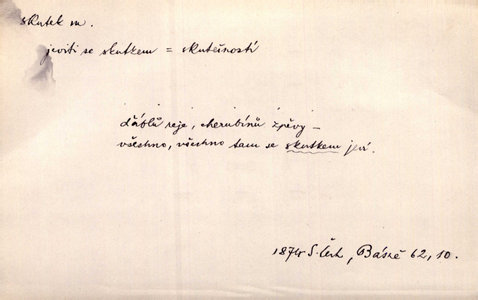 skutek m.
jeviti se skutkem = skutečností
ďáblů reje, cherubínů zpěvy –
všechno, všechno tam se skutkem jeví.
1874 S. Čech, Básně 62, 10.